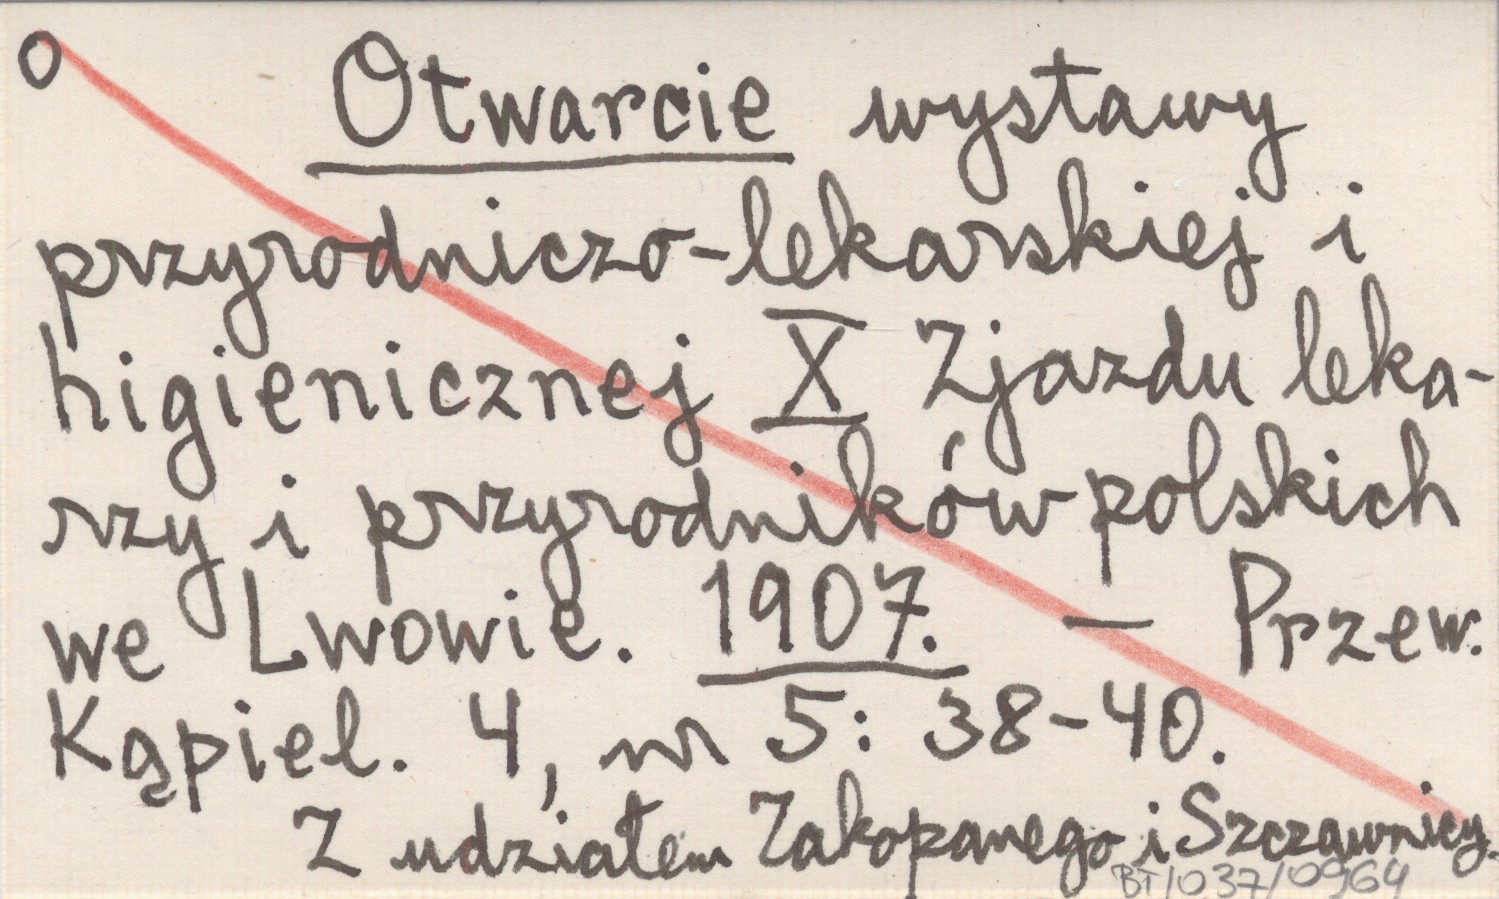 O Otwarcie wystawy
przyrodniczo-lekarskiej i
higienicznej X Zjazdu leka-
rzy i przyrodników polskich
we Lwowie. 1907. — Przew.
Kąpiel. 4, nr 5: 38-40.
Z udziałem Zakopanego i Szczawnicy.
BT/037/0964